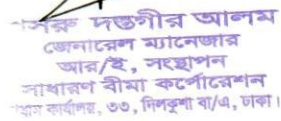 খসরু দস্তগীর আলম
জেনারেল ম্যানেজার
আর/ই, সংস্থাপন
সাধারণ বীমা কর্পোরেশন
প্রধান কার্যালয়, ৩৩, দিলকুশা বা/এ, ঢাকা।